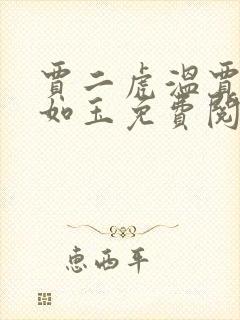 賈二虎溫賈
如玉免費閱
惠西平